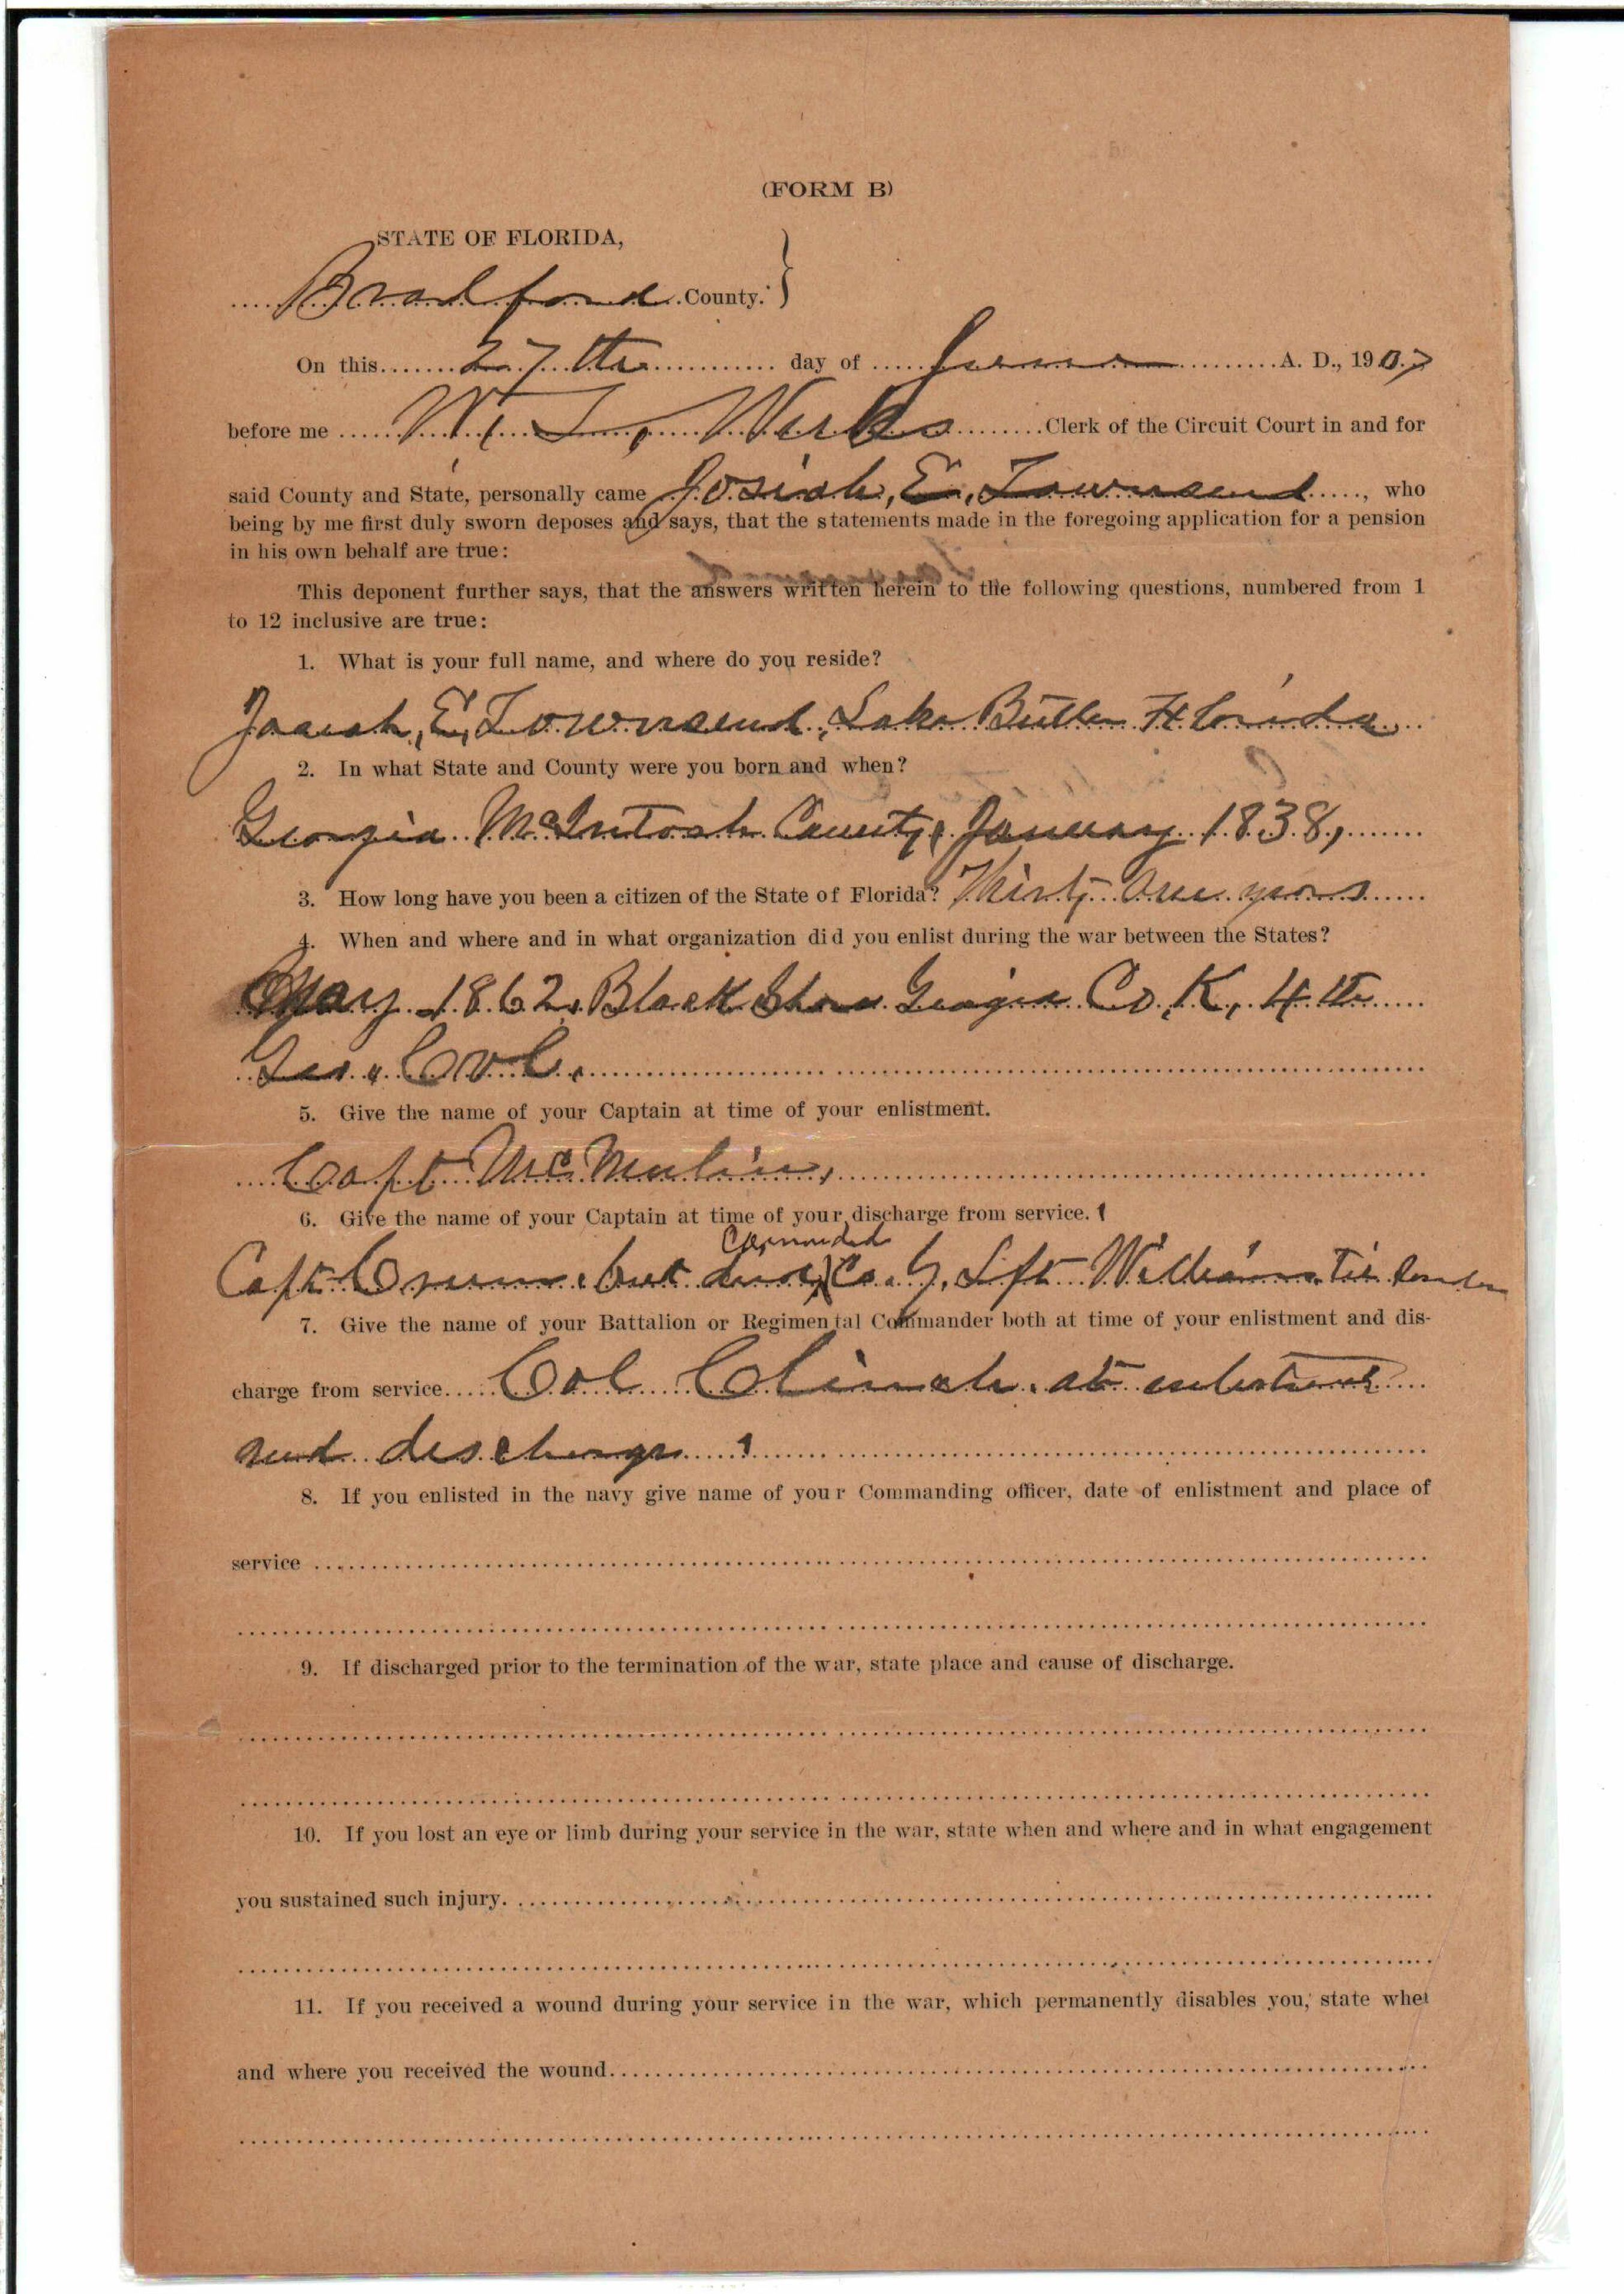 (FORM B)
STATE OF FLORIDA,
Bradford County.
On this 27th day of June A. D., 1907
before me W. Clerk of the Circuit Court in and for
said County and State, personally came Josiah, E, Townsend, who
being by me first duly sworn deposes and says, that the statements made in the foregoing application for a pension
in his own behalf are true:
This deponent further says, that the answers written herein to the following questions, numbered from 1
to 12 inclusive are true:
1. What is your full name, and where do you reside?
Josiah, E, Townsend, Lake Butler Florida
2. In what State and County were you born and when?
Georgia McIntosh County, January 1838,
3. How long have you been a citizen of the State of Florida? Thirty One years
4. When and where and in what organization did you enlist during the war between the States?
May 1862, Black Shear Georgia Co, K, 4th
Geo. Cvl.
5. Give the name of your Captain at time of your enlistment.
Capt McMulin,
6. Give the name of your Captain at time of your discharge from service.
Commanded
Capt but Co. G, Lft William
7. Give the name of your Battalion or Regimental Commander both at time of your enlistment and dis-
charge from service Col Clinch at enlistment
and discharge
8. If you enlisted in the navy give name of your Commanding officer, date of enlistment and place of
service
9. If discharged prior to the termination of the war, state place and cause of discharge.
10. If you lost an eye or limb during your service in the war, state when and where and in what engagement
you sustained such injury.
11. If you received a wound during your service in the war, which permanently disables you, state whe
and where you received the wound